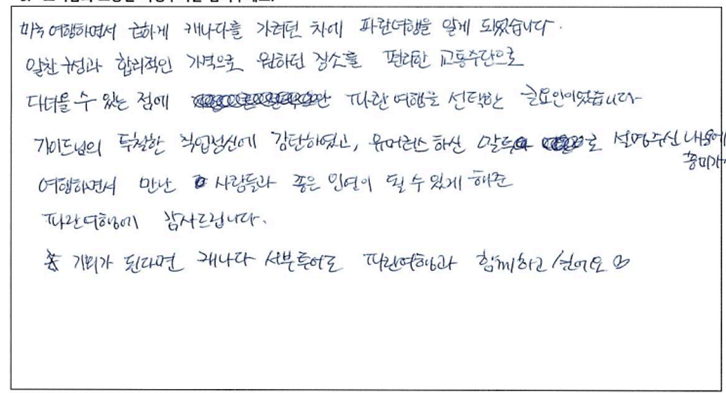 미국 여행하면서 급하게 캐나다를 가려던 차에 파란여행을 알게 되었습니다.
알찬 구성과 합리적인 가격으로 원하던 장소를 편리한 교통수단으로
다녀올 수 있는 점에 파란여행을 선택한 큰 요인이었습니다
가이드님의 투철한 직업정신에 감탄하였고, 유머러스하신 말투로 설명주신 내용에
흥미가
여행하면서 만난 사람들과 좋은 인연이 될 수 있게 해준
파란여행에 감사드립니다.
기회가 된다면 캐나다 서부투어도 파란여행과 함께하고 싶어요